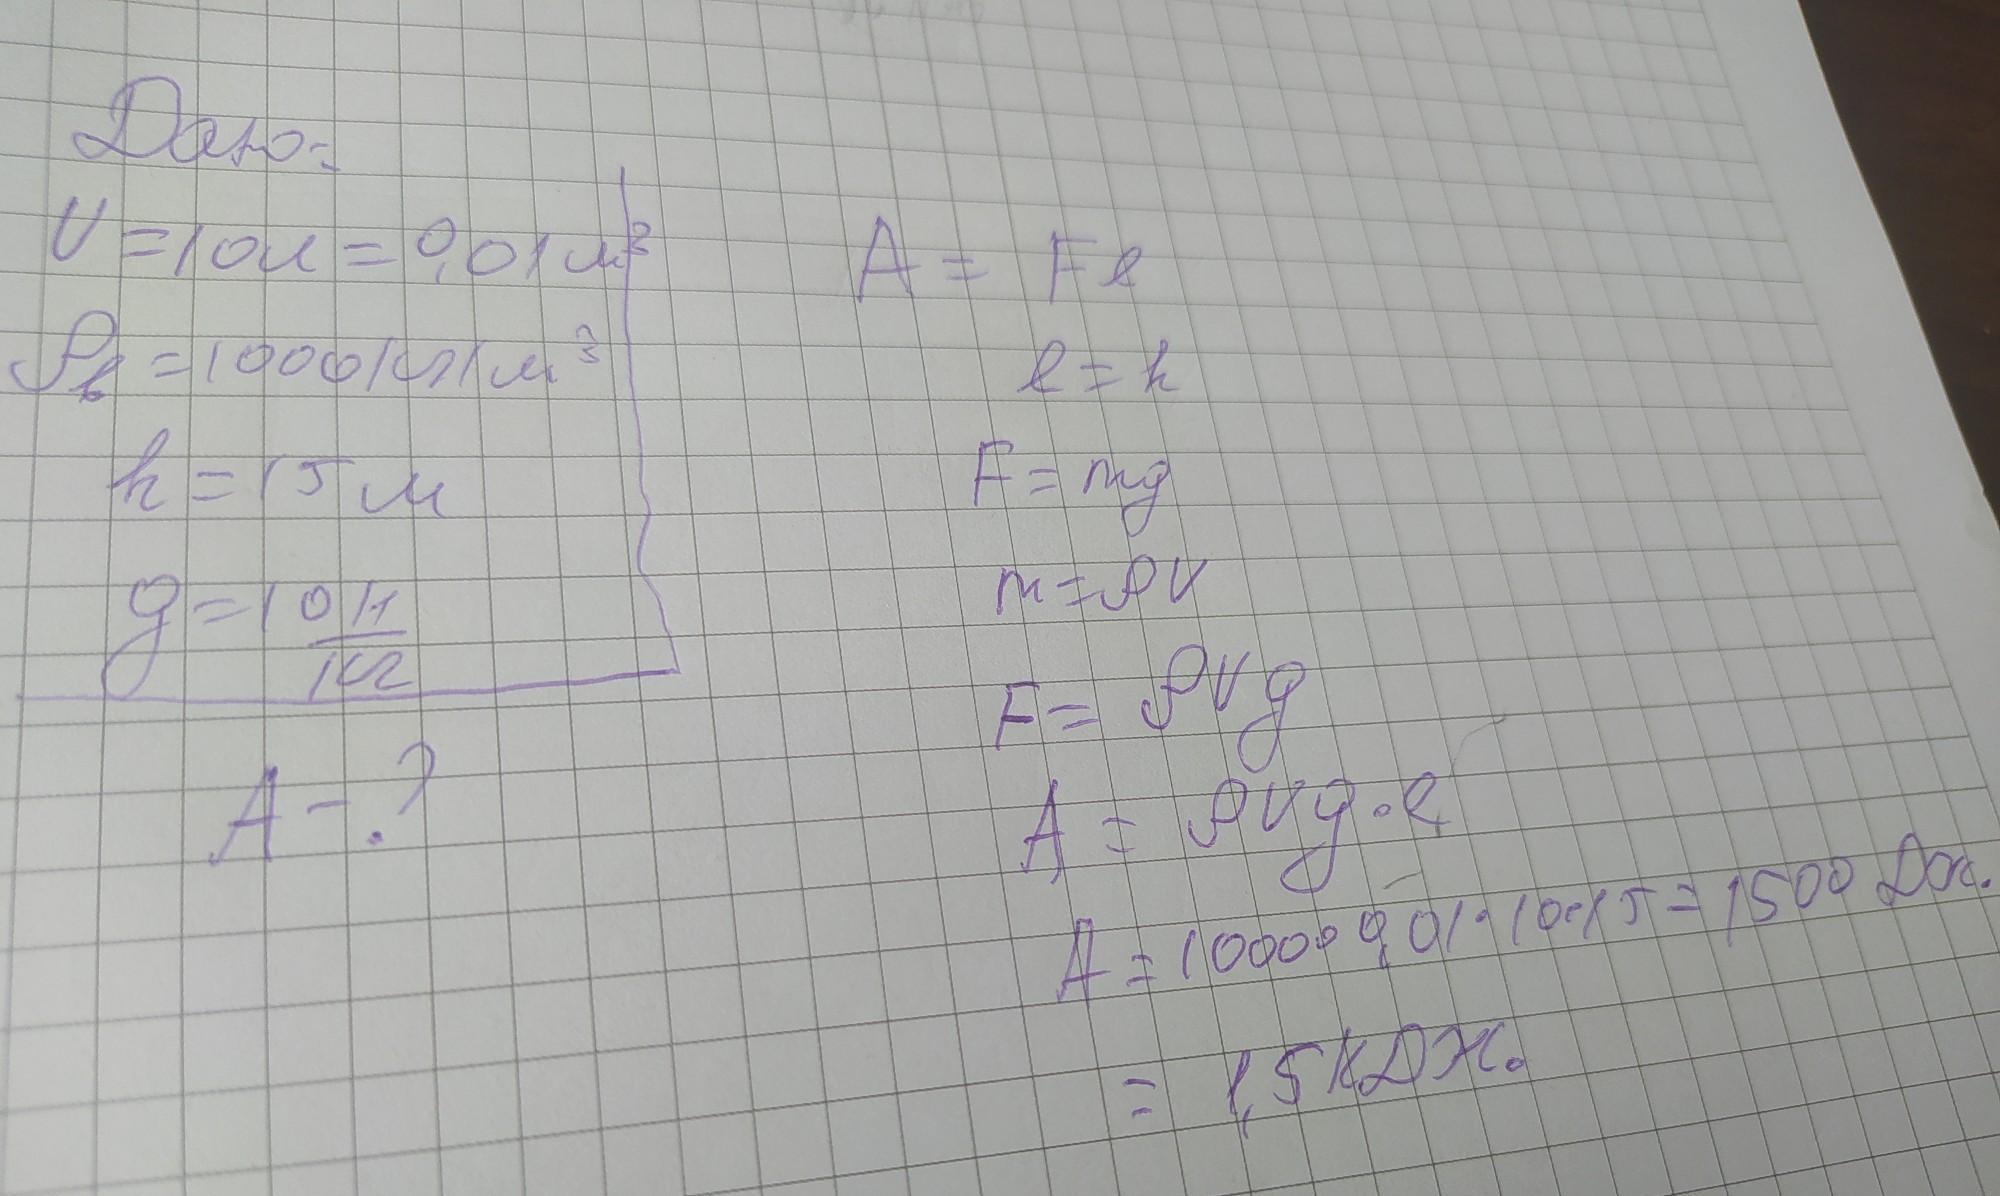 Дано:
V = 10л = 0,01 м³
ρв = 1000 кг/м³
h = 15 м
g = 10 Н/кг
A - ?
A = Fℓ
ℓ = h
F = mg
m = ρV
F = ρVg
A = ρVg · ℓ
A = 1000 · 0,01 · 10 · 15 = 1500 Дж.
= 1,5 кДж.